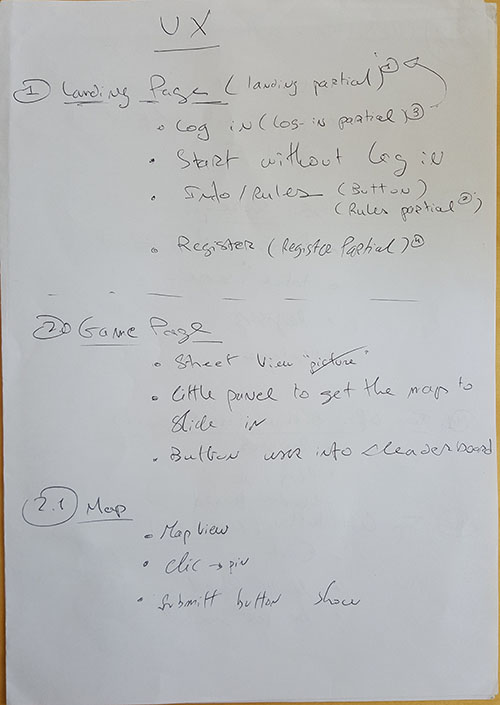 UX
① Landing Page (landing partial) ①
• Log in (log-in partial) ③
• Start without Log in
• Info/Rules (Button)
(Rules partial ②)
• Register (Register Partial) ④
2.0 Game Page
• Street View "picture"
• Little panel to get the map to
Slide in
• Button user info Leaderboard
2.1 Map
• Map View
• clic → pin
• Submitt button show